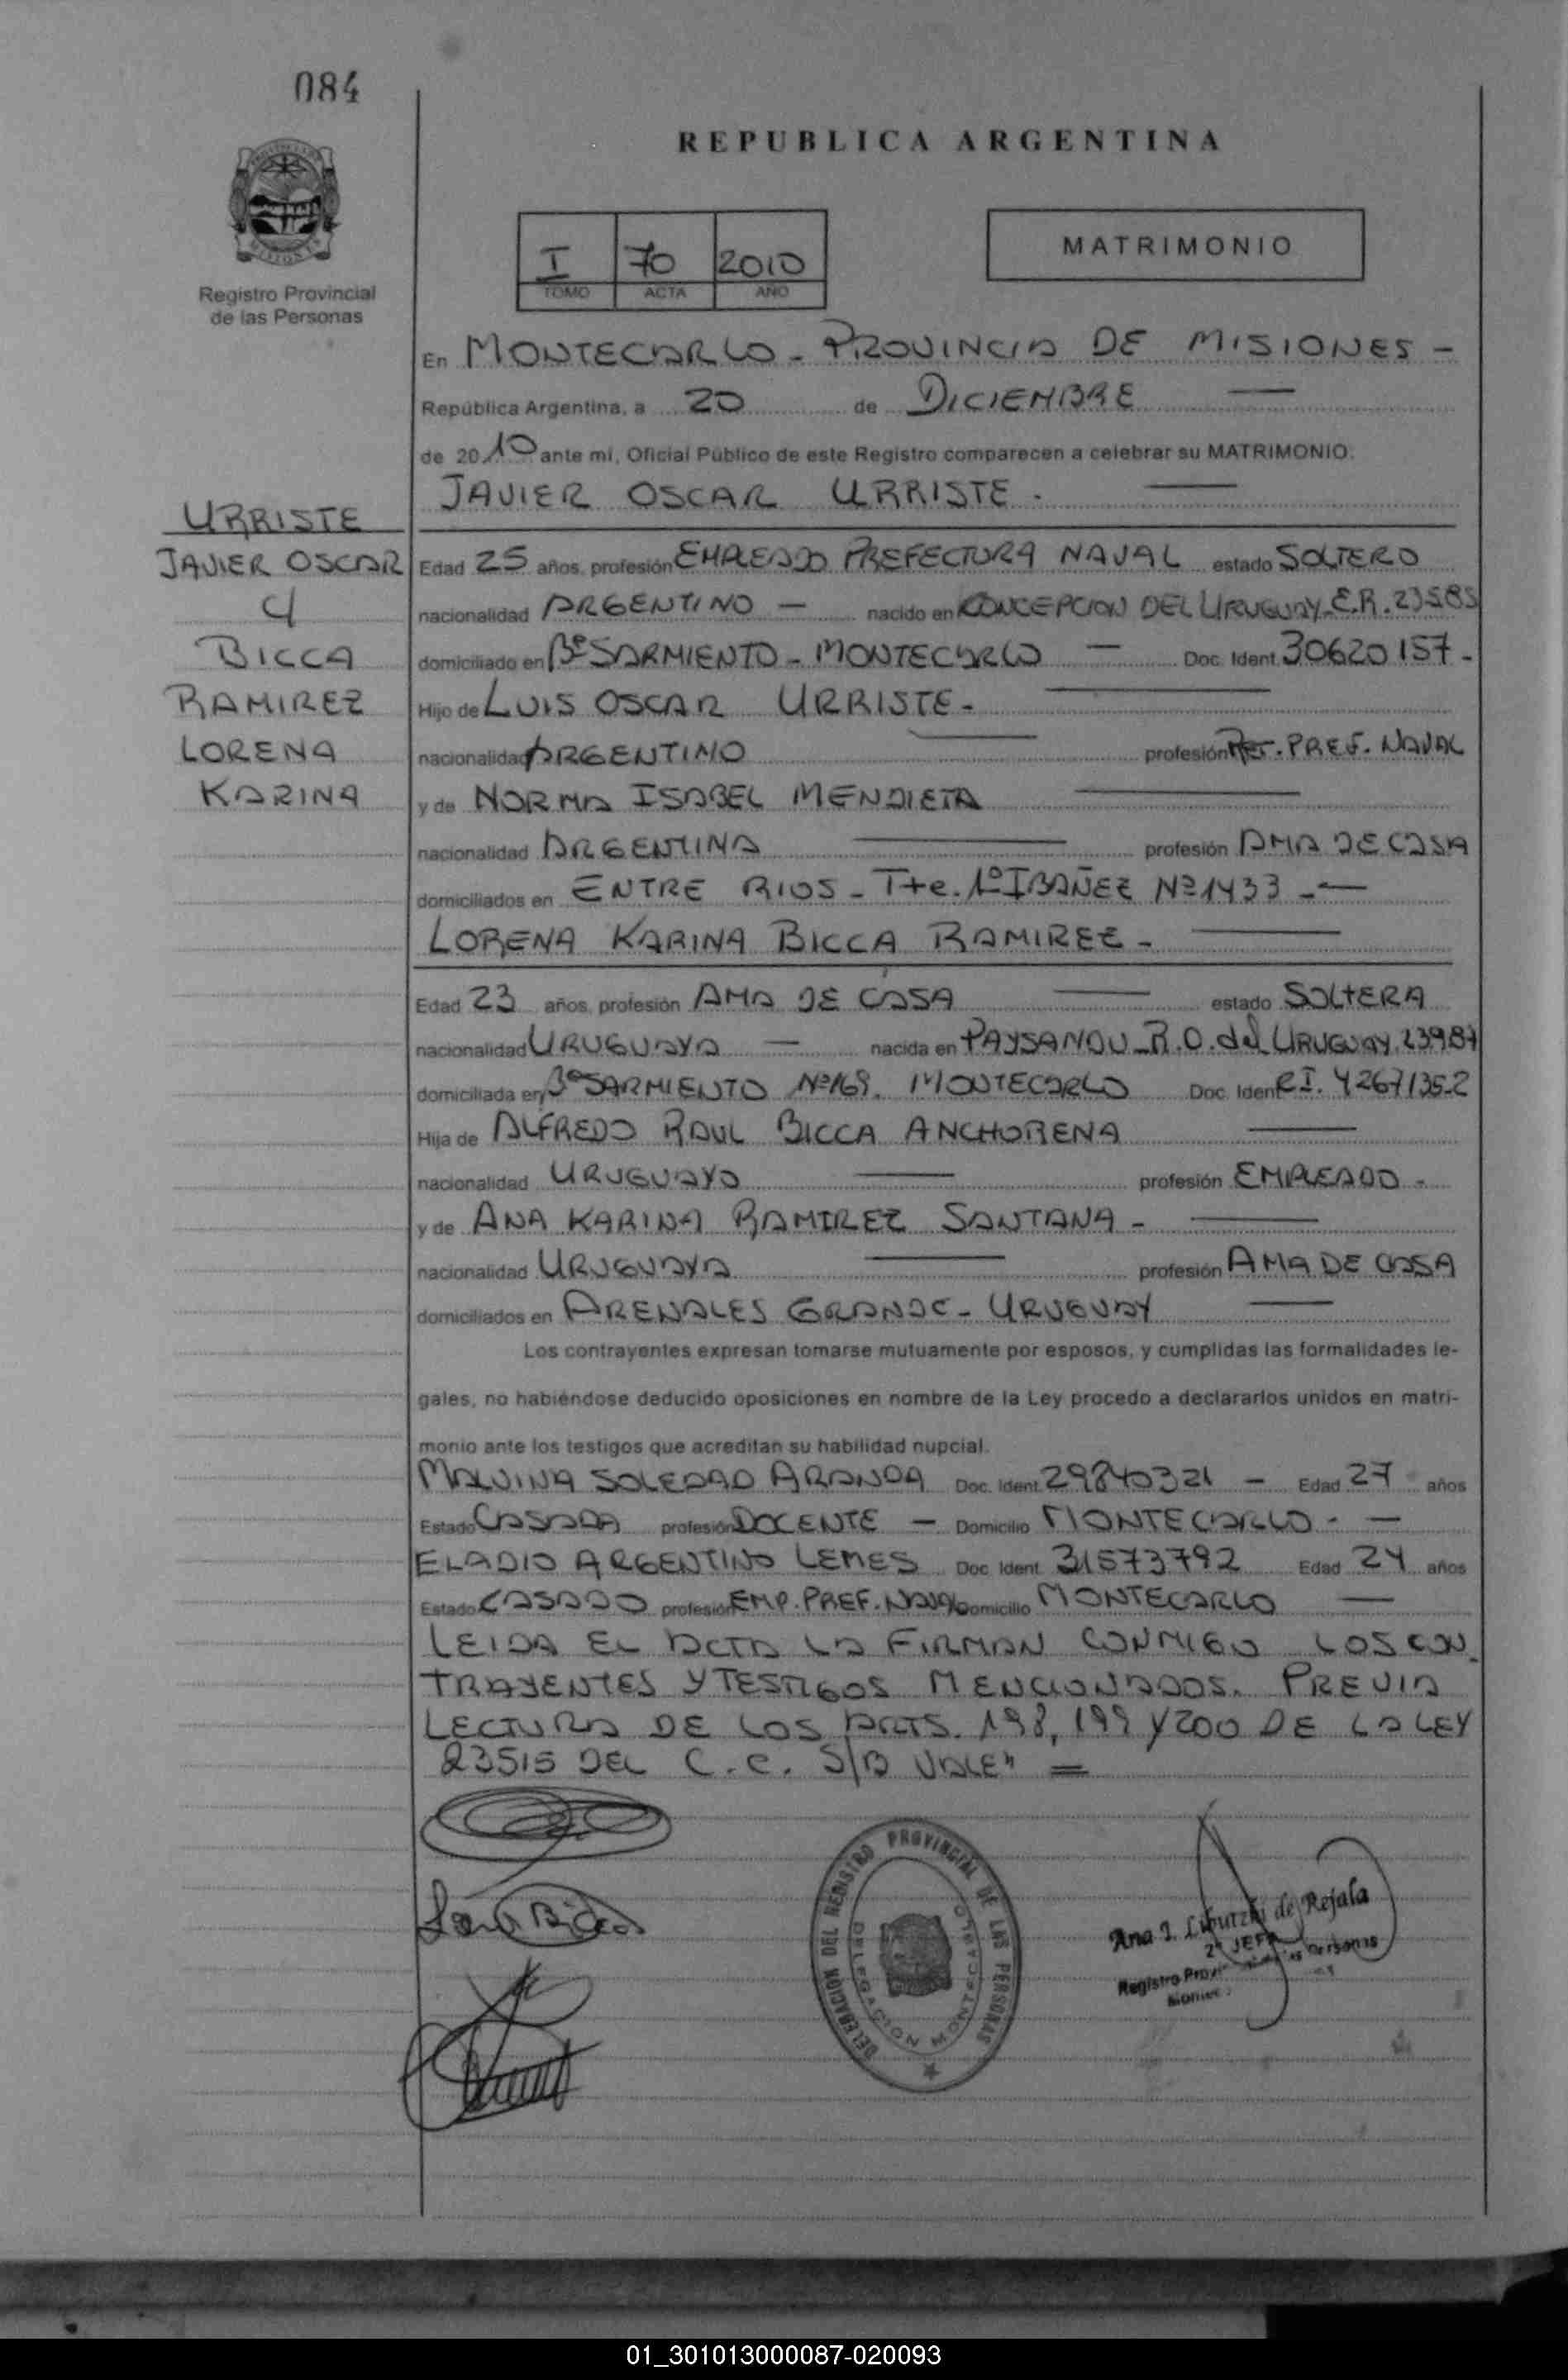 084
REPUBLICA ARGENTINA
I 70 2010
TOMO ACTA AÑO
MATRIMONIO
Registro Provincial
de las Personas
En MONTECARLO - PROVINCIA DE MISIONES -
República Argentina, a 20 de DICIEMBRE
de 2010 ante mí, Oficial Público de este Registro comparecen a celebrar su MATRIMONIO.
JAVIER OSCAR URRISTE.
URRISTE
JAVIER OSCAR
Y
BICCA
RAMIREZ
LORENA
KARINA
Edad 25 años, profesión EMPLEADO PREFECTURA NAVAL estado SOLTERO
nacionalidad ARGENTINO - nacido en CONCEPCION DEL URUGUAY-E.R. 23585
domiciliado en Bº SARMIENTO - MONTECARLO - Doc. Ident. 30620157-
Hijo de LUIS OSCAR URRISTE-
nacionalidad ARGENTINO profesión RET. PREF. NAVAL
y de NORMA ISABEL MENDIETA
nacionalidad ARGENTINA profesión AMA DE CASA
domiciliados en ENTRE RIOS - Tte. 1º IBAÑEZ Nº 1433 -
LORENA KARINA BICCA RAMIREZ -
Edad 23 años, profesión AMA DE CASA estado SOLTERA
nacionalidad URUGUAYA - nacida en PAYSANDU-R.O. del URUGUAY. 23987
domiciliada en Bº SARMIENTO Nº 169. MONTECARLO Doc. Ident R I. 4267135-2
Hija de ALFREDO RAUL BICCA ANCHORENA
nacionalidad URUGUAYO profesión EMPLEADO -
y de ANA KARINA RAMIREZ SANTANA -
nacionalidad URUGUAYA profesión AMA DE CASA
domiciliados en ARENALES GRANDE - URUGUAY
Los contrayentes expresan tomarse mutuamente por esposos, y cumplidas las formalidades le-
gales, no habiéndose deducido oposiciones en nombre de la Ley procedo a declararlos unidos en matri-
monio ante los testigos que acreditan su habilidad nupcial.
MALVINA SOLEDAD ARANDA Doc. Ident. 29840321 - Edad 27 años
Estado CASADA profesión DOCENTE - Domicilio MONTECARLO. -
ELADIO ARGENTINO LEMES Doc. Ident. 31573792 Edad 24 años
Estado CASADO profesión EMP. PREF. NAVAL Domicilio MONTECARLO
LEIDA EL ACTA LA FIRMAN CONMIGO LOS CON
TRAYENTES Y TESTIGOS MENCIONADOS. PREVIA
LECTURA DE LOS ARTS. 198, 199 Y 200 DE LA LEY
23515 DEL C.C. S/B VALE" =
DELEGACION DEL REGISTRO PROVINCIAL DE LAS PERSONAS
DELEGACION MONTECARLO
Ana I. de Rejala
2º JEFE
Registro de las Personas
01_301013000087-020093